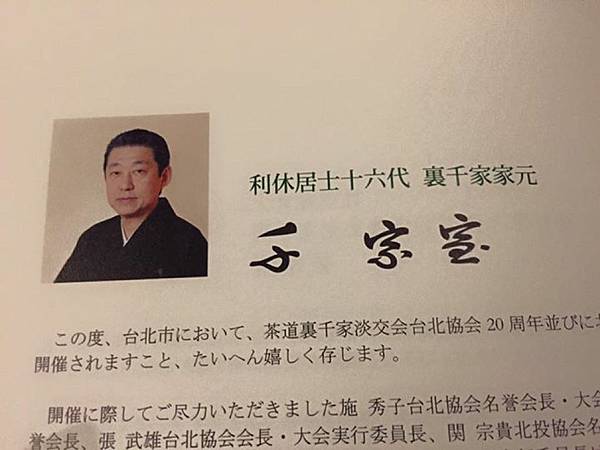 利休居士十六代 裏千家家元
千 宗室
この度、台北市において、茶道裏千家淡交会台北協会20周年並びに
開催されますこと、たいへん嬉しく存じます。
開催に際してご尽力いただきました施 秀子台北協会名誉会長・大会
誉会長、張 武雄台北協会会長・大会実行委員長、関 宗貴北投協会名